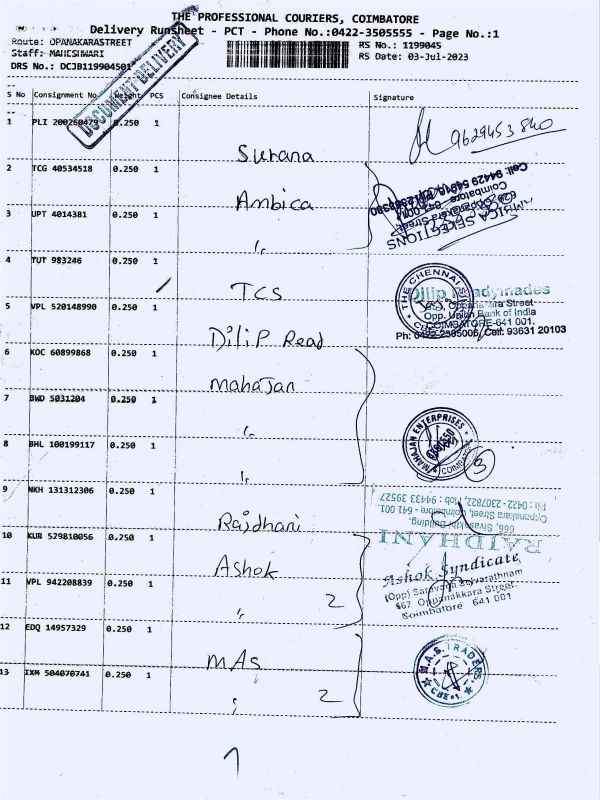 THE PROFESSIONAL COURIERS, COIMBATORE
Delivery Runsheet - PCT - Phone No.:0422-3505555 - Page No.:1
Route: OPANAKARASTREET
RS No.: 1199045
Staff: MAHESHWARI
RS Date: 03-Jul-2023
DRS No.: DCJB119904501
DOCUMENT DELIVERY
S No Consignment No Weight PCS Consignee Details Signature
1 PLI 200260479 0.250 1 Surana 9629453840
2 TCG 40534518 0.250 1 Ambica
AMBICA SELECTIONS
Coimbatore
3 UPT 4014381 0.250 1 "
4 TUT 983246 0.250 1 TCS
THE CHENNAI SILKS
5 VPL 520148990 0.250 1 Dilip Read
Dilip Readymades
Oppanakara Street
Opp. Union Bank of India
COIMBATORE-641 001.
Ph: 0422-2385006, Cell: 93631 20103
6 KOC 60899868 0.250 1 Mahajan
7 BWD 5031204 0.250 1 "
MAHAJAN ENTERPRISES
COIMBATORE
8 BHL 100199117 0.250 1 "
3
9 NKH 131312306 0.250 1 Rajdhani
RAJDHANI
666, Sivasakthi Building,
Oppanakara Street, Coimbatore - 641 001.
Ph : 0422 - 2307822, Mob : 94433 39527
10 KUR 529810056 0.250 1 Ashok
Ashok Syndicate
(Opp) Saravana Selvarathnam
667 Oppanakkara Street,
Coimbatore 641 001
11 VPL 942208839 0.250 1 " 2
12 EDQ 14957329 0.250 1 MAS
M.A.S. TRADERS
CBE-1
13 IXM 504070741 0.250 1 " 2
1